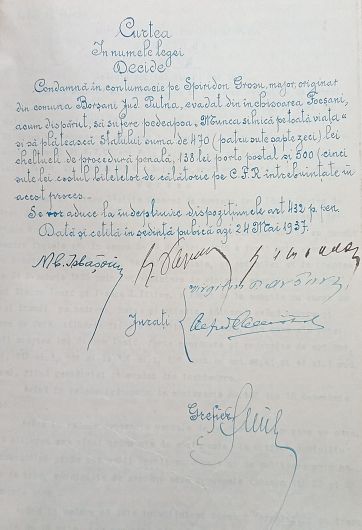 Curtea
În numele legei
Decide
Condamnă în contumacie pe Spiridon Grosu, major, originar
din comuna Borșani Jud Putna, evadat din închisoarea Focșani,
acum dispărut, să sufere pedeapsa „Munca silnică pe toată viața"
și să plătească Statului suma de 470 (patru sute șaptezeci) lei
cheltueli de procedură penală, 138 lei porto postal și 500 (cinci
sute lei costul biletelor de călătorie pe C.F.R întrebuințate în
acest proces.
Se vor aduce la îndeplinire dispozițiunele art 432 p. pen.
Dată și cetită în ședință publică azi 24 Mai 1937.
Jurați
Grefier